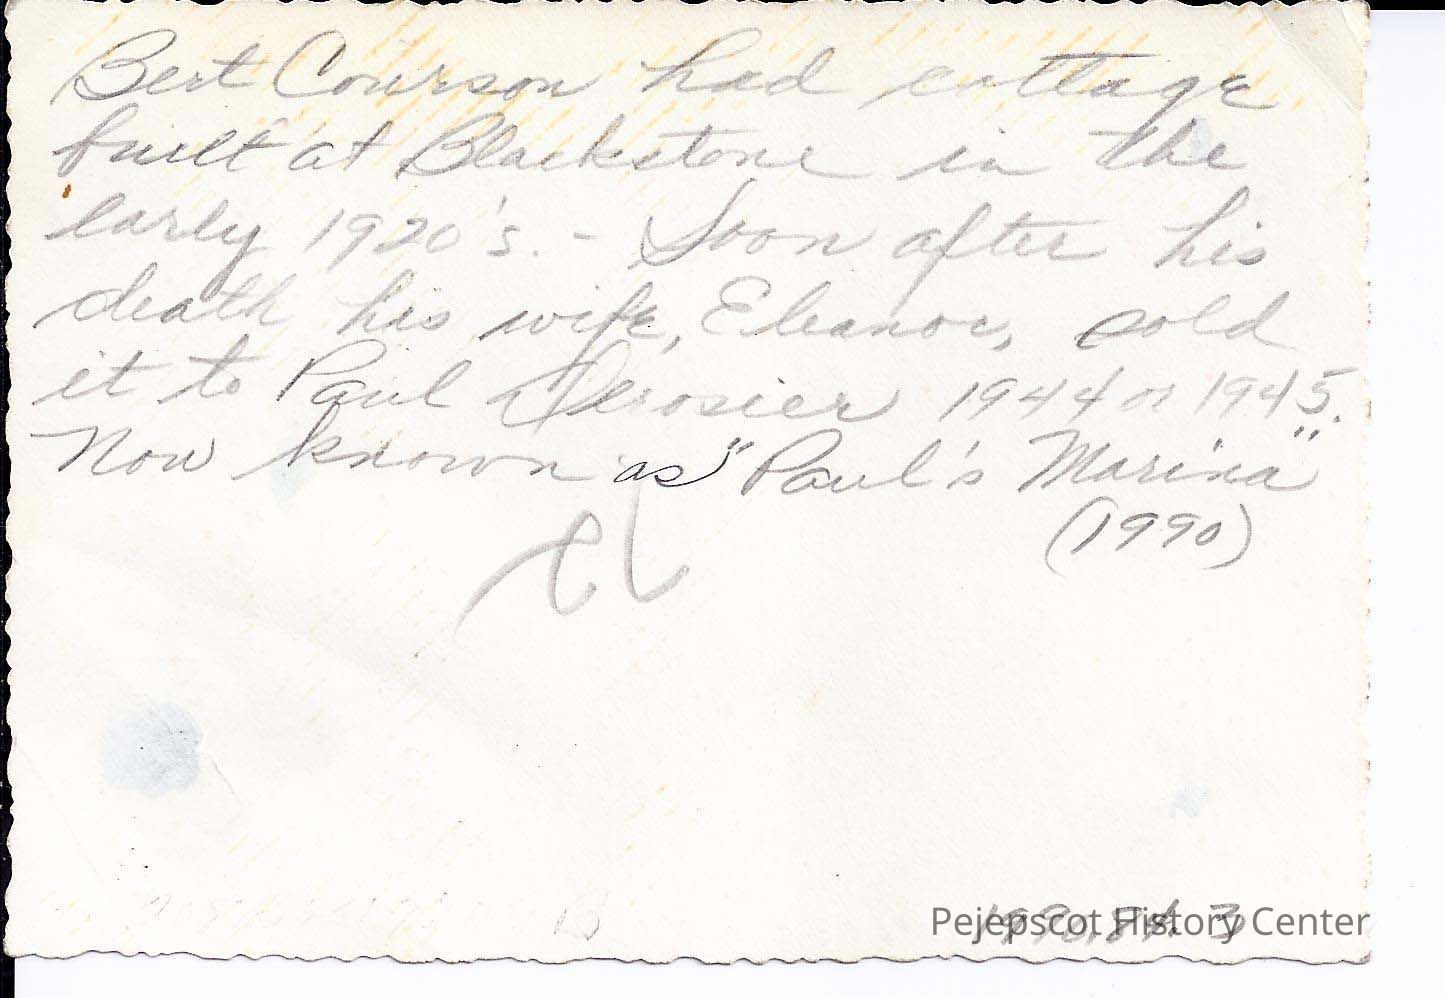 Bert Courson had cottage
built at Blackstone in the
early 1920's. - Soon after his
death his wife, Eleanor, sold
it to Paul Derosier 1944 or 1945.
Now known as "Paul's Marina"
(1990)
Pejepscot History Center